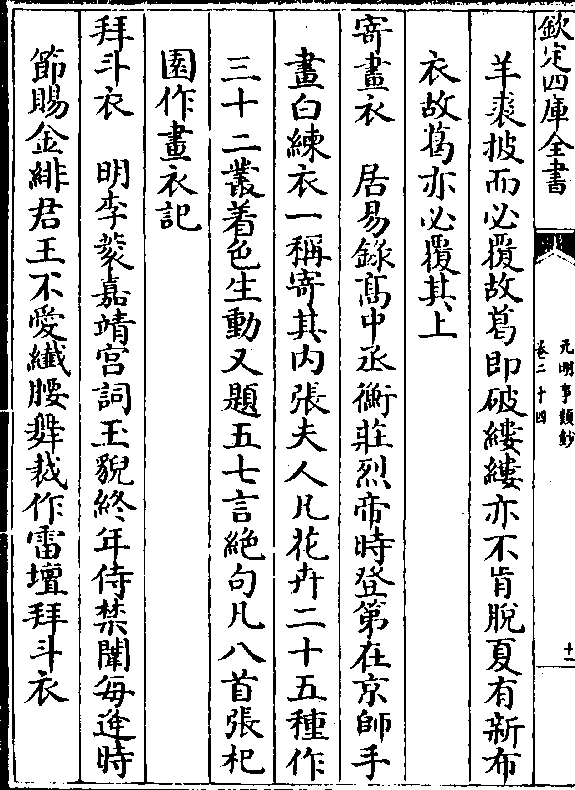 欽定四庫全書
元明事類鈔
卷二十四
十二
羊裘披而必覆故葛即破縷縷亦不肯脫夏有新布
衣故葛亦必覆其上
寄畫衣　居易錄高中丞衡莊烈帝時登第在京師手
畫白練衣一稱寄其内張夫人凡花卉二十五種作
三十二叢着色生動又題五七言絶句凡八首張杞
園作畫衣記
拜斗衣　明李蓘嘉靖宮詞玉貌終年侍禁闈每逢時
節賜金緋君王不愛纖腰舞裁作雷壇拜斗衣